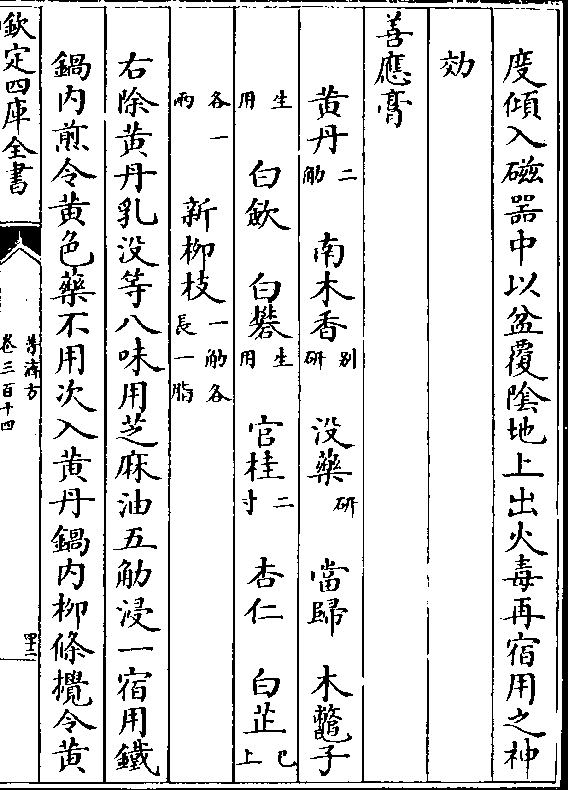 度傾入磁器中以盆覆隂地上出火毒再宿用之神
効
善應膏
黄丹二觔 南木香别研 没藥研 當歸 木鼈子
生用 白歛 白礬生用 官桂二寸 杏仁 白芷已上
各一兩 新柳枝一觔各長一脂
右除黄丹乳没等八味用芝麻油五觔浸一宿用鐵
鍋内煎令黄色藥不用次入黄丹鍋内柳條攪令黄
欽定四庫全書
普濟方
卷三百十四